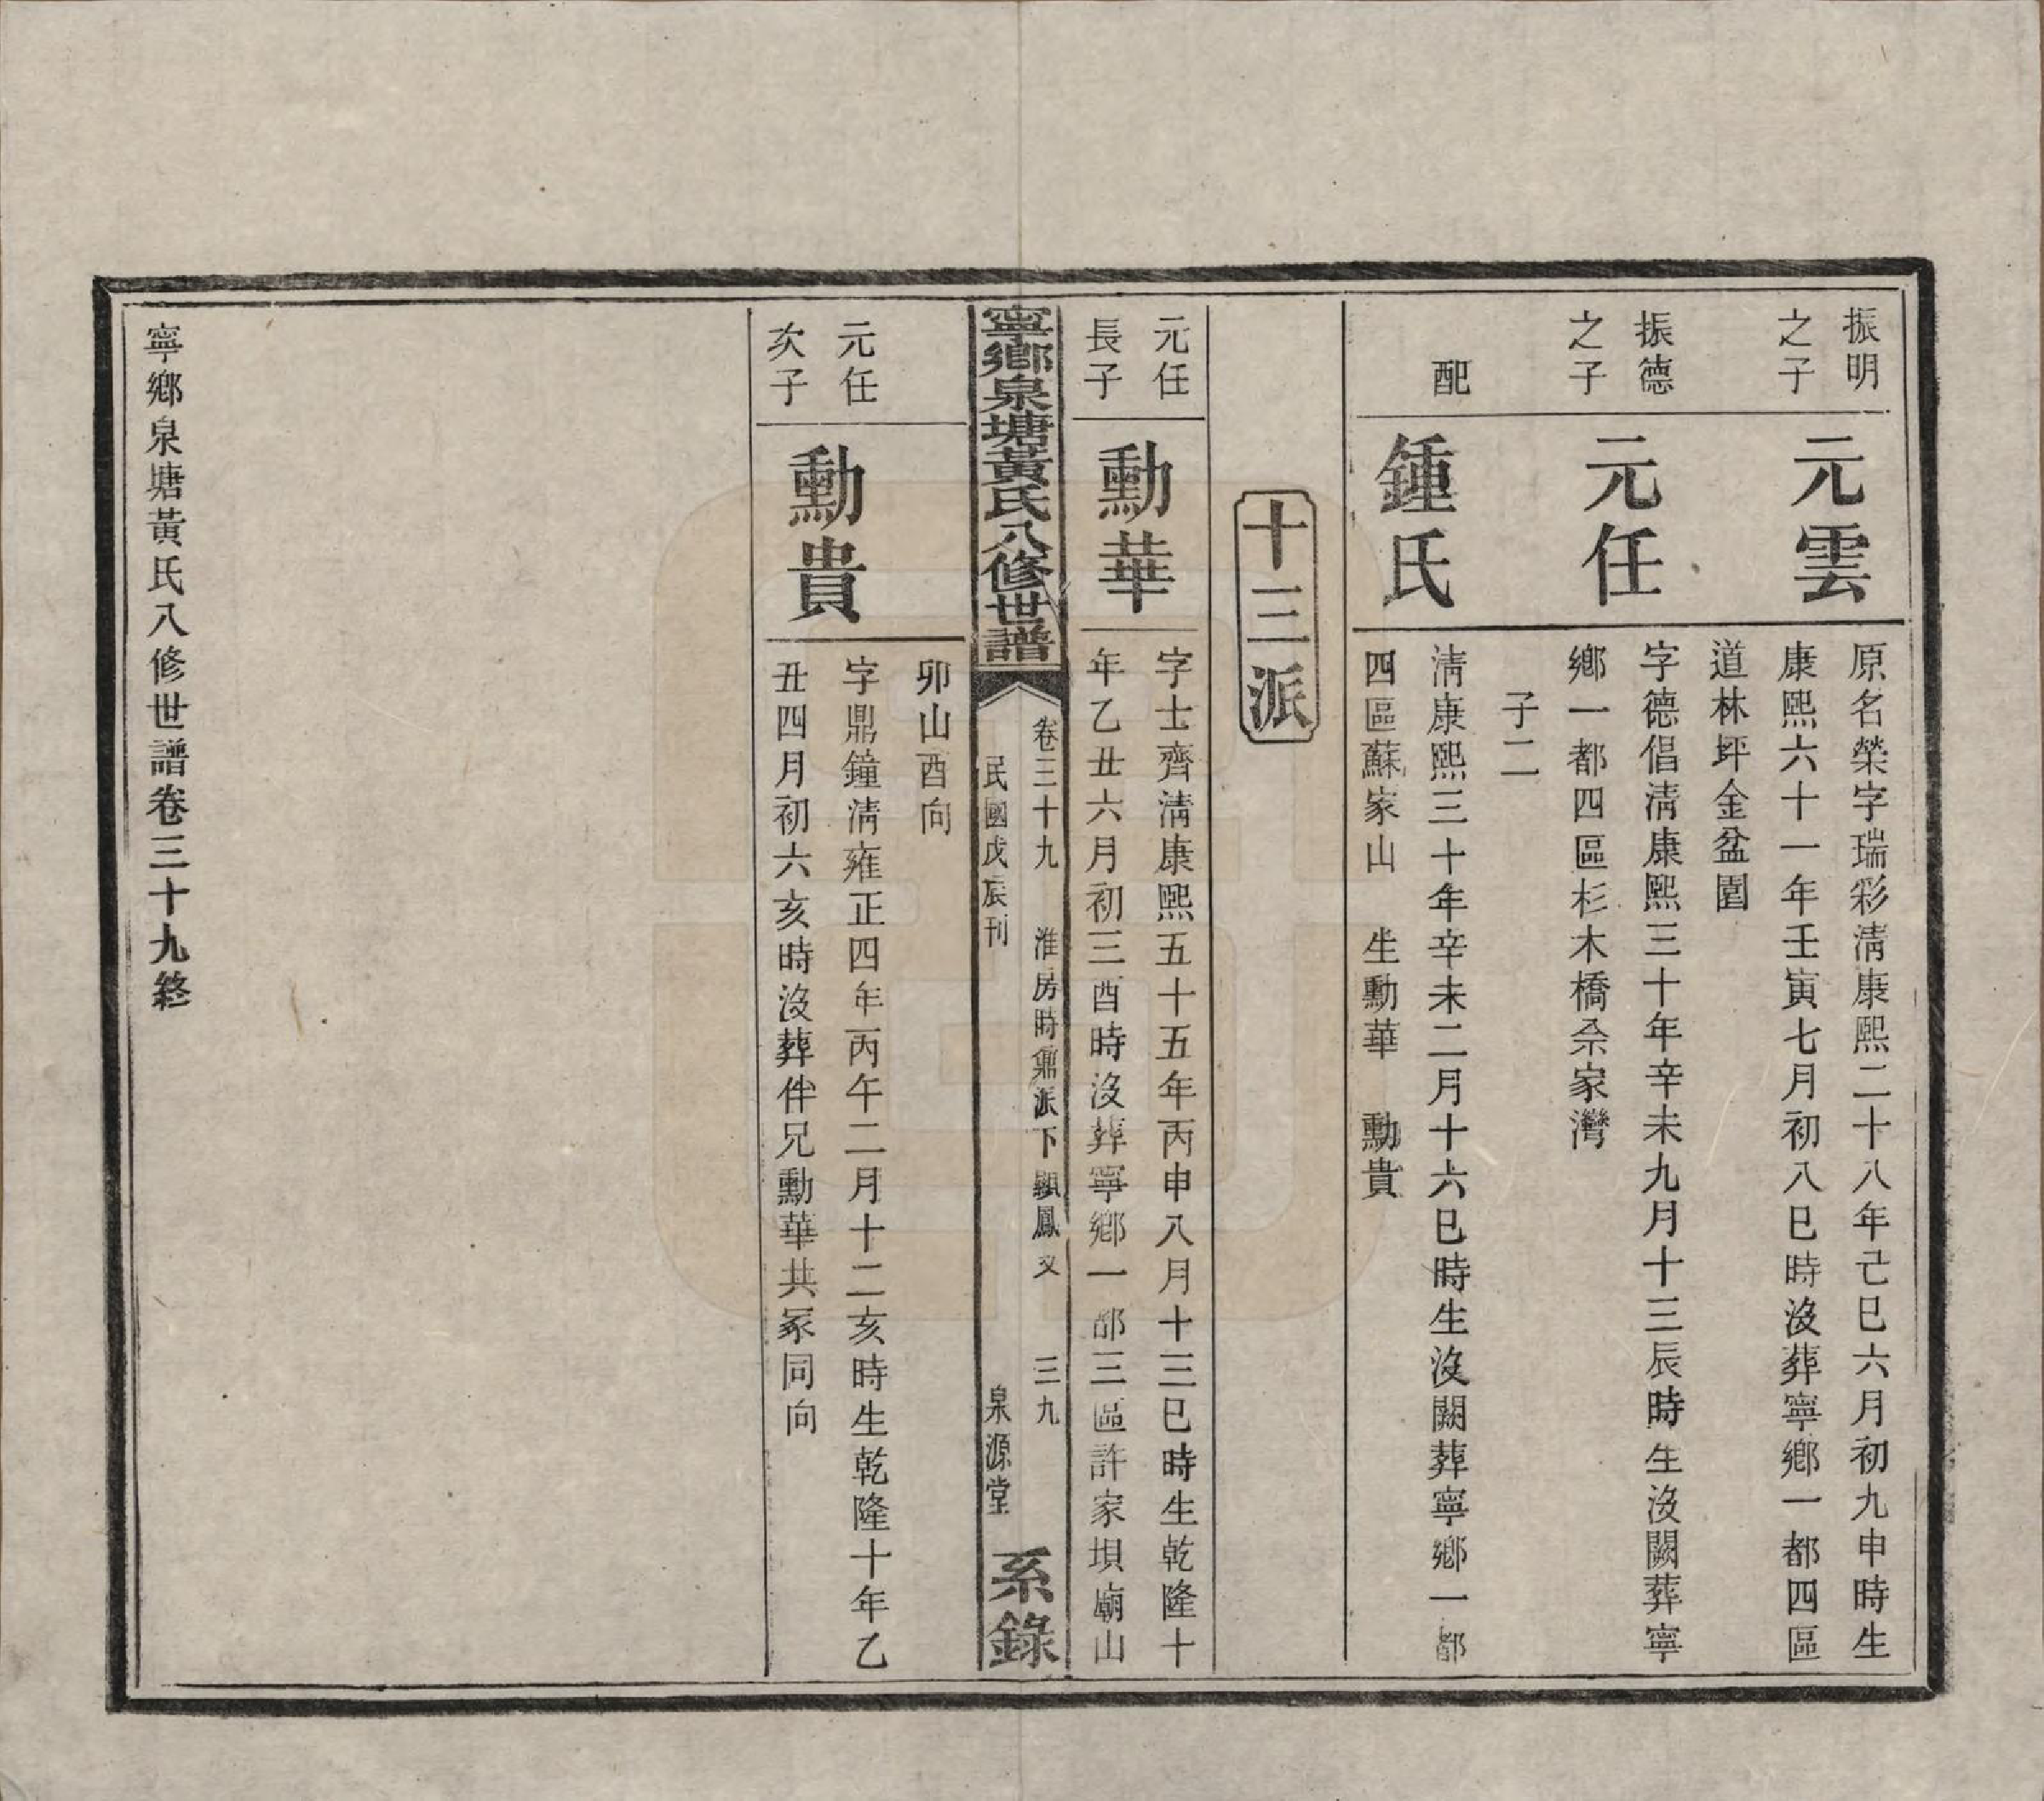 振明
之子
元雲
原名榮字瑞彩淸康熙二十八年己巳六月初九申時生
康熙六十一年壬寅七月初八巳時沒葬寧鄉一都四區
道林坪金盆圍
振德
之子
元任
字德倡淸康熙三十年辛未九月十三辰時生沒闕葬寧
鄉一都四區杉木橋佘家灣
子二
配
鍾氏
淸康熙三十年辛未二月十六巳時生沒闕葬寧鄉一都
四區蘇家山 生勳華 勳貴
十三派
元任
長子
勳華
字士齊淸康熙五十五年丙申八月十三巳時生乾隆十
年乙丑六月初三酉時沒葬寧鄉一都三區許家垻廟山
寧鄉泉塘黃氏八修世譜
卷三十九 淮房時鼐派下顯鳳文 三九
民國戊辰刊 泉源堂
系錄
卯山酉向
元任
次子
勳貴
字鼎鐘淸雍正四年丙午二月十二亥時生乾隆十年乙
丑四月初六亥時沒葬伴兄勳華共冢同向
寧鄉泉塘黃氏八修世譜卷三十九終